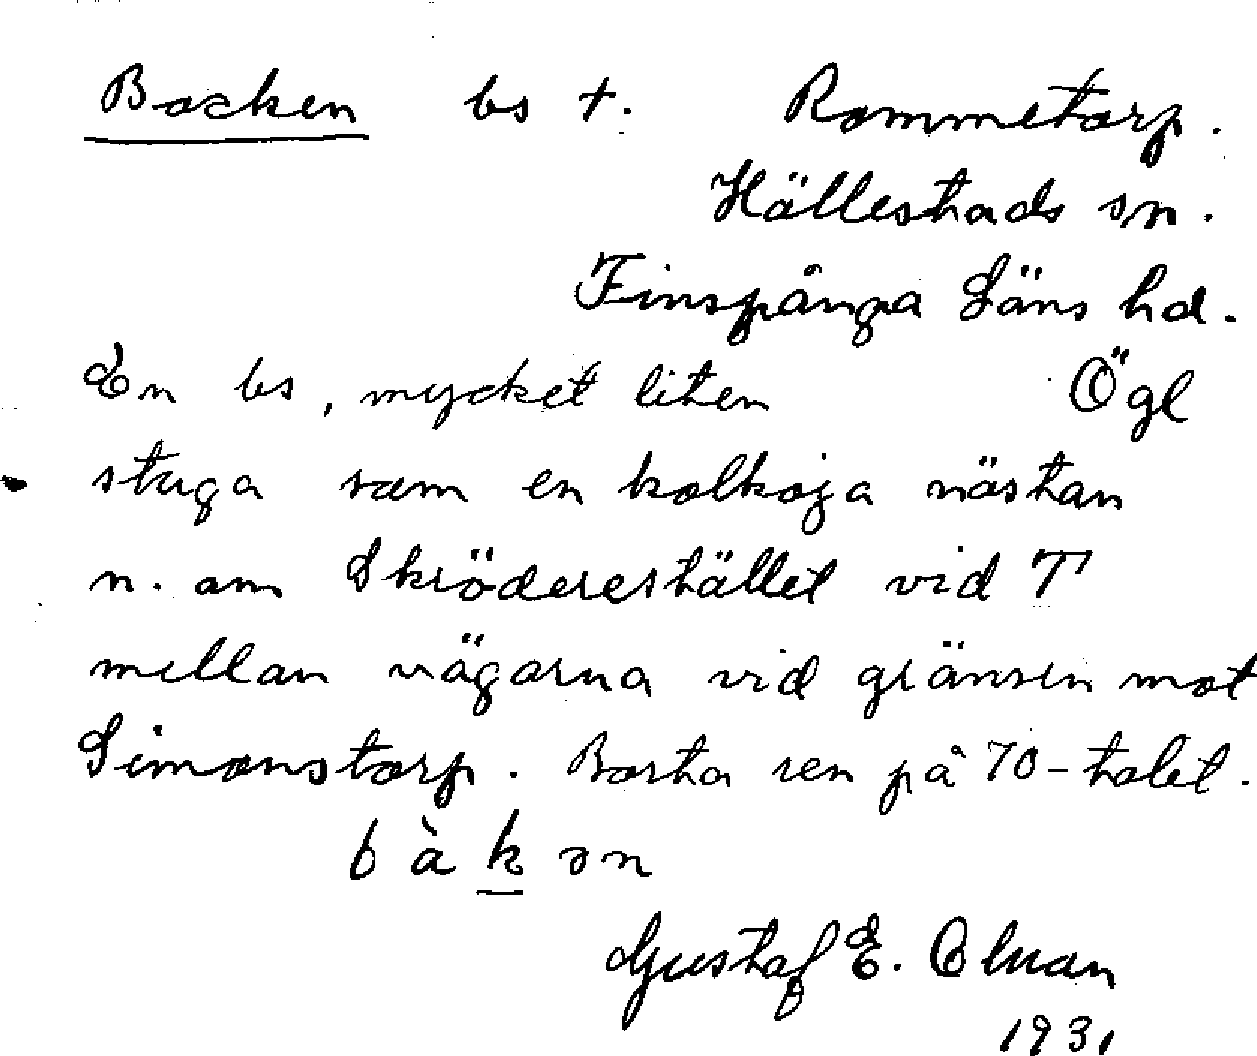 Backen bs t. Rommetorp.
Hällestads sn.
Finspånga Läns hd.
En bs, mycket liten Ögl
stuga som en kolkoja nästan
n. om Skröderestället vid T
mellan vägarna vid gränsen mot
Simonstorp. Borta ren på 70-talet.
b à k ə n
Gustaf E.
1931